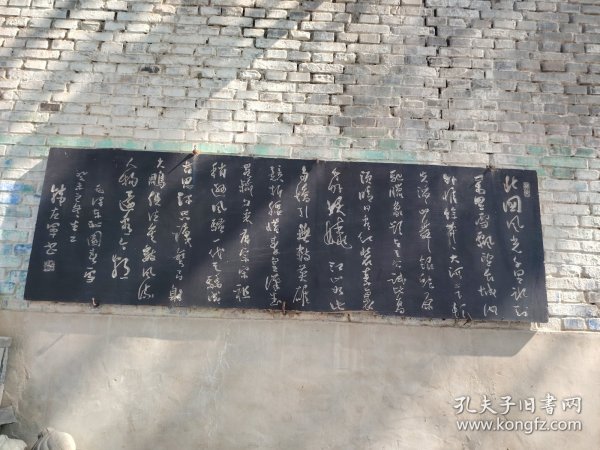 北国风光千里冰封
万里雪飘望长城内
外惟馀莽莽大河上下顿
失滔滔山舞银蛇原
驰腊象欲与天公试比高
须晴日看红装素裹
分外妖娆江山如此
多娇引无数英雄
竞折腰惜秦皇汉武
略输文采唐宗宋祖
稍逊风骚一代天骄成
吉思汗只识弯弓射
大雕俱往矣数风流
人物还看今朝
毛泽东沁园春雪
孔夫子旧书网
www.kongfz.com